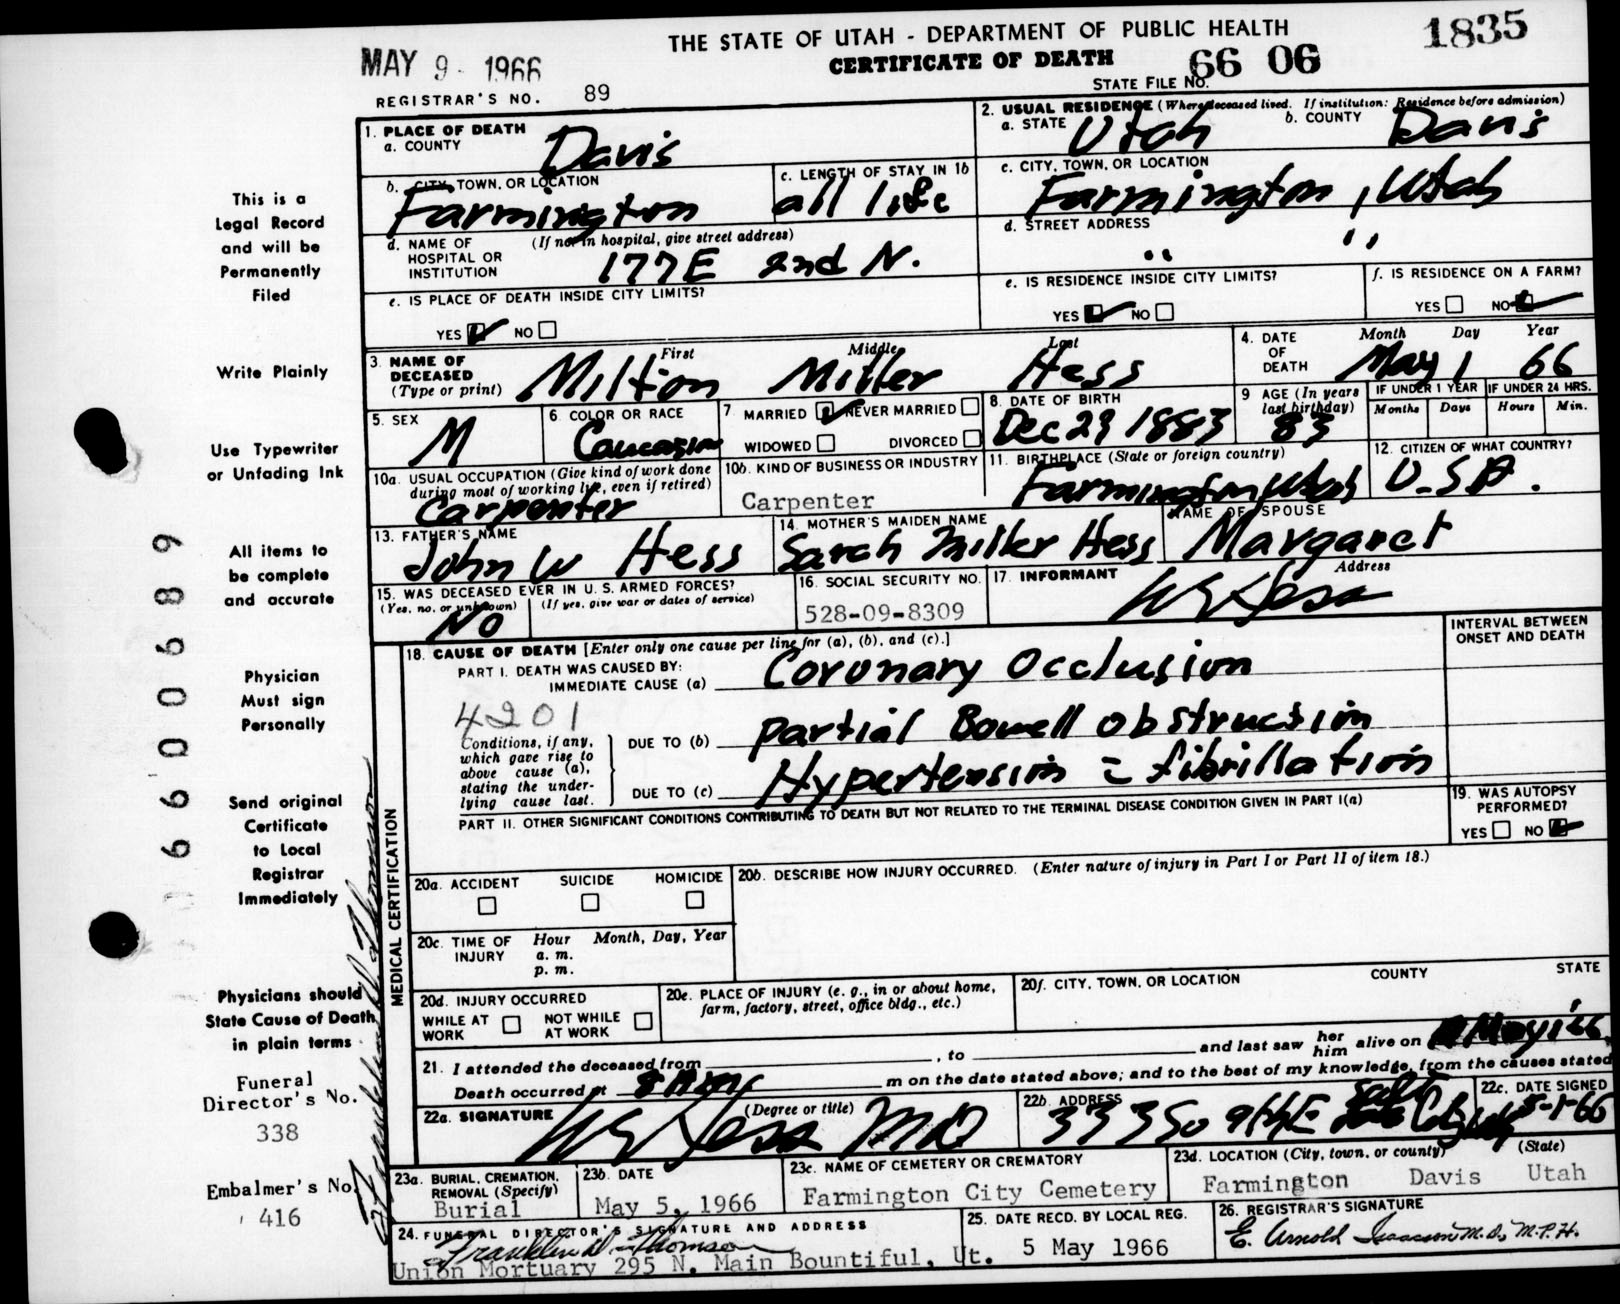 THE STATE OF UTAH - DEPARTMENT OF PUBLIC HEALTH
1835
MAY 9 - 1966
CERTIFICATE OF DEATH
66 06
STATE FILE NO.
REGISTRAR'S NO. 89
This is a
Legal Record
and will be
Permanently
Filed
Write Plainly
Use Typewriter
or Unfading Ink
All items to
be complete
and accurate
Physician
Must sign
Personally
Send original
Certificate
to Local
Registrar
Immediately
Physicians should
State Cause of Death
in plain terms
Funeral
Director's No.
338
Embalmer's No.
416
6600689
1. PLACE OF DEATH
a. COUNTY Davis
2. USUAL RESIDENCE (Where deceased lived. If institution: Residence before admission)
a. STATE Utah b. COUNTY Davis
b. CITY, TOWN, OR LOCATION Farmington
c. LENGTH OF STAY IN 1b all life
c. CITY, TOWN, OR LOCATION Farmington, Utah
d. NAME OF HOSPITAL OR INSTITUTION (If not in hospital, give street address) 177 E 2nd N.
d. STREET ADDRESS " "
e. IS PLACE OF DEATH INSIDE CITY LIMITS?
YES NO
e. IS RESIDENCE INSIDE CITY LIMITS?
YES NO
f. IS RESIDENCE ON A FARM?
YES NO
3. NAME OF DECEASED (Type or print) First Middle Last
Milton Miller Hess
4. DATE OF DEATH Month Day Year
May 1 66
5. SEX M
6. COLOR OR RACE Caucasian
7 MARRIED NEVER MARRIED
WIDOWED DIVORCED
8. DATE OF BIRTH Dec 29 1883
9 AGE (In years last birthday) 83
IF UNDER 1 YEAR IF UNDER 24 HRS.
Months Days Hours Min.
10a. USUAL OCCUPATION (Give kind of work done during most of working life, even if retired)
Carpenter
10b. KIND OF BUSINESS OR INDUSTRY
Carpenter
11. BIRTHPLACE (State or foreign country)
Farmington Utah
12. CITIZEN OF WHAT COUNTRY?
U.S.A.
13. FATHER'S NAME
John W Hess
14. MOTHER'S MAIDEN NAME
Sarah Miller Hess
NAME OF SPOUSE
Margaret
15. WAS DECEASED EVER IN U.S. ARMED FORCES?
(Yes, no, or unknown) (If yes, give war or dates of service)
No
16. SOCIAL SECURITY NO.
528-09-8309
17. INFORMANT Address
W E Hess
MEDICAL CERTIFICATION
18. CAUSE OF DEATH [Enter only one cause per line for (a), (b), and (c).]
INTERVAL BETWEEN ONSET AND DEATH
PART I. DEATH WAS CAUSED BY:
IMMEDIATE CAUSE (a) Coronary Occlusion
4201
Conditions, if any, which gave rise to above cause (a), stating the underlying cause last.
DUE TO (b) partial Bowell obstruction
DUE TO (c) Hypertension = fibrillation
PART II. OTHER SIGNIFICANT CONDITIONS CONTRIBUTING TO DEATH BUT NOT RELATED TO THE TERMINAL DISEASE CONDITION GIVEN IN PART I(a)
19. WAS AUTOPSY PERFORMED?
YES NO
20a. ACCIDENT SUICIDE HOMICIDE
20b. DESCRIBE HOW INJURY OCCURRED. (Enter nature of injury in Part I or Part II of item 18.)
20c. TIME OF INJURY Hour Month, Day, Year
a. m.
p. m.
20d. INJURY OCCURRED
WHILE AT WORK NOT WHILE AT WORK
20e. PLACE OF INJURY (e. g., in or about home, farm, factory, street, office bldg., etc.)
20f. CITY, TOWN, OR LOCATION COUNTY STATE
21. I attended the deceased from , to and last saw her him alive on May 1 '66
Death occurred at m on the date stated above; and to the best of my knowledge, from the causes stated
22a. SIGNATURE (Degree or title)
W E Hess MD
22b. ADDRESS
333 So 9th E Salt City
22c. DATE SIGNED
5-1-66
23a. BURIAL, CREMATION, REMOVAL (Specify)
Burial
23b. DATE
May 5, 1966
23c. NAME OF CEMETERY OR CREMATORY
Farmington City Cemetery
23d. LOCATION (City, town, or county) (State)
Farmington Davis Utah
24. FUNERAL DIRECTOR'S SIGNATURE AND ADDRESS
Franklin D. Thomson
Union Mortuary 295 N. Main Bountiful, Ut.
25. DATE RECD. BY LOCAL REG.
5 May 1966
26. REGISTRAR'S SIGNATURE
E. Arnold Isaacson M.D., M.P.H.